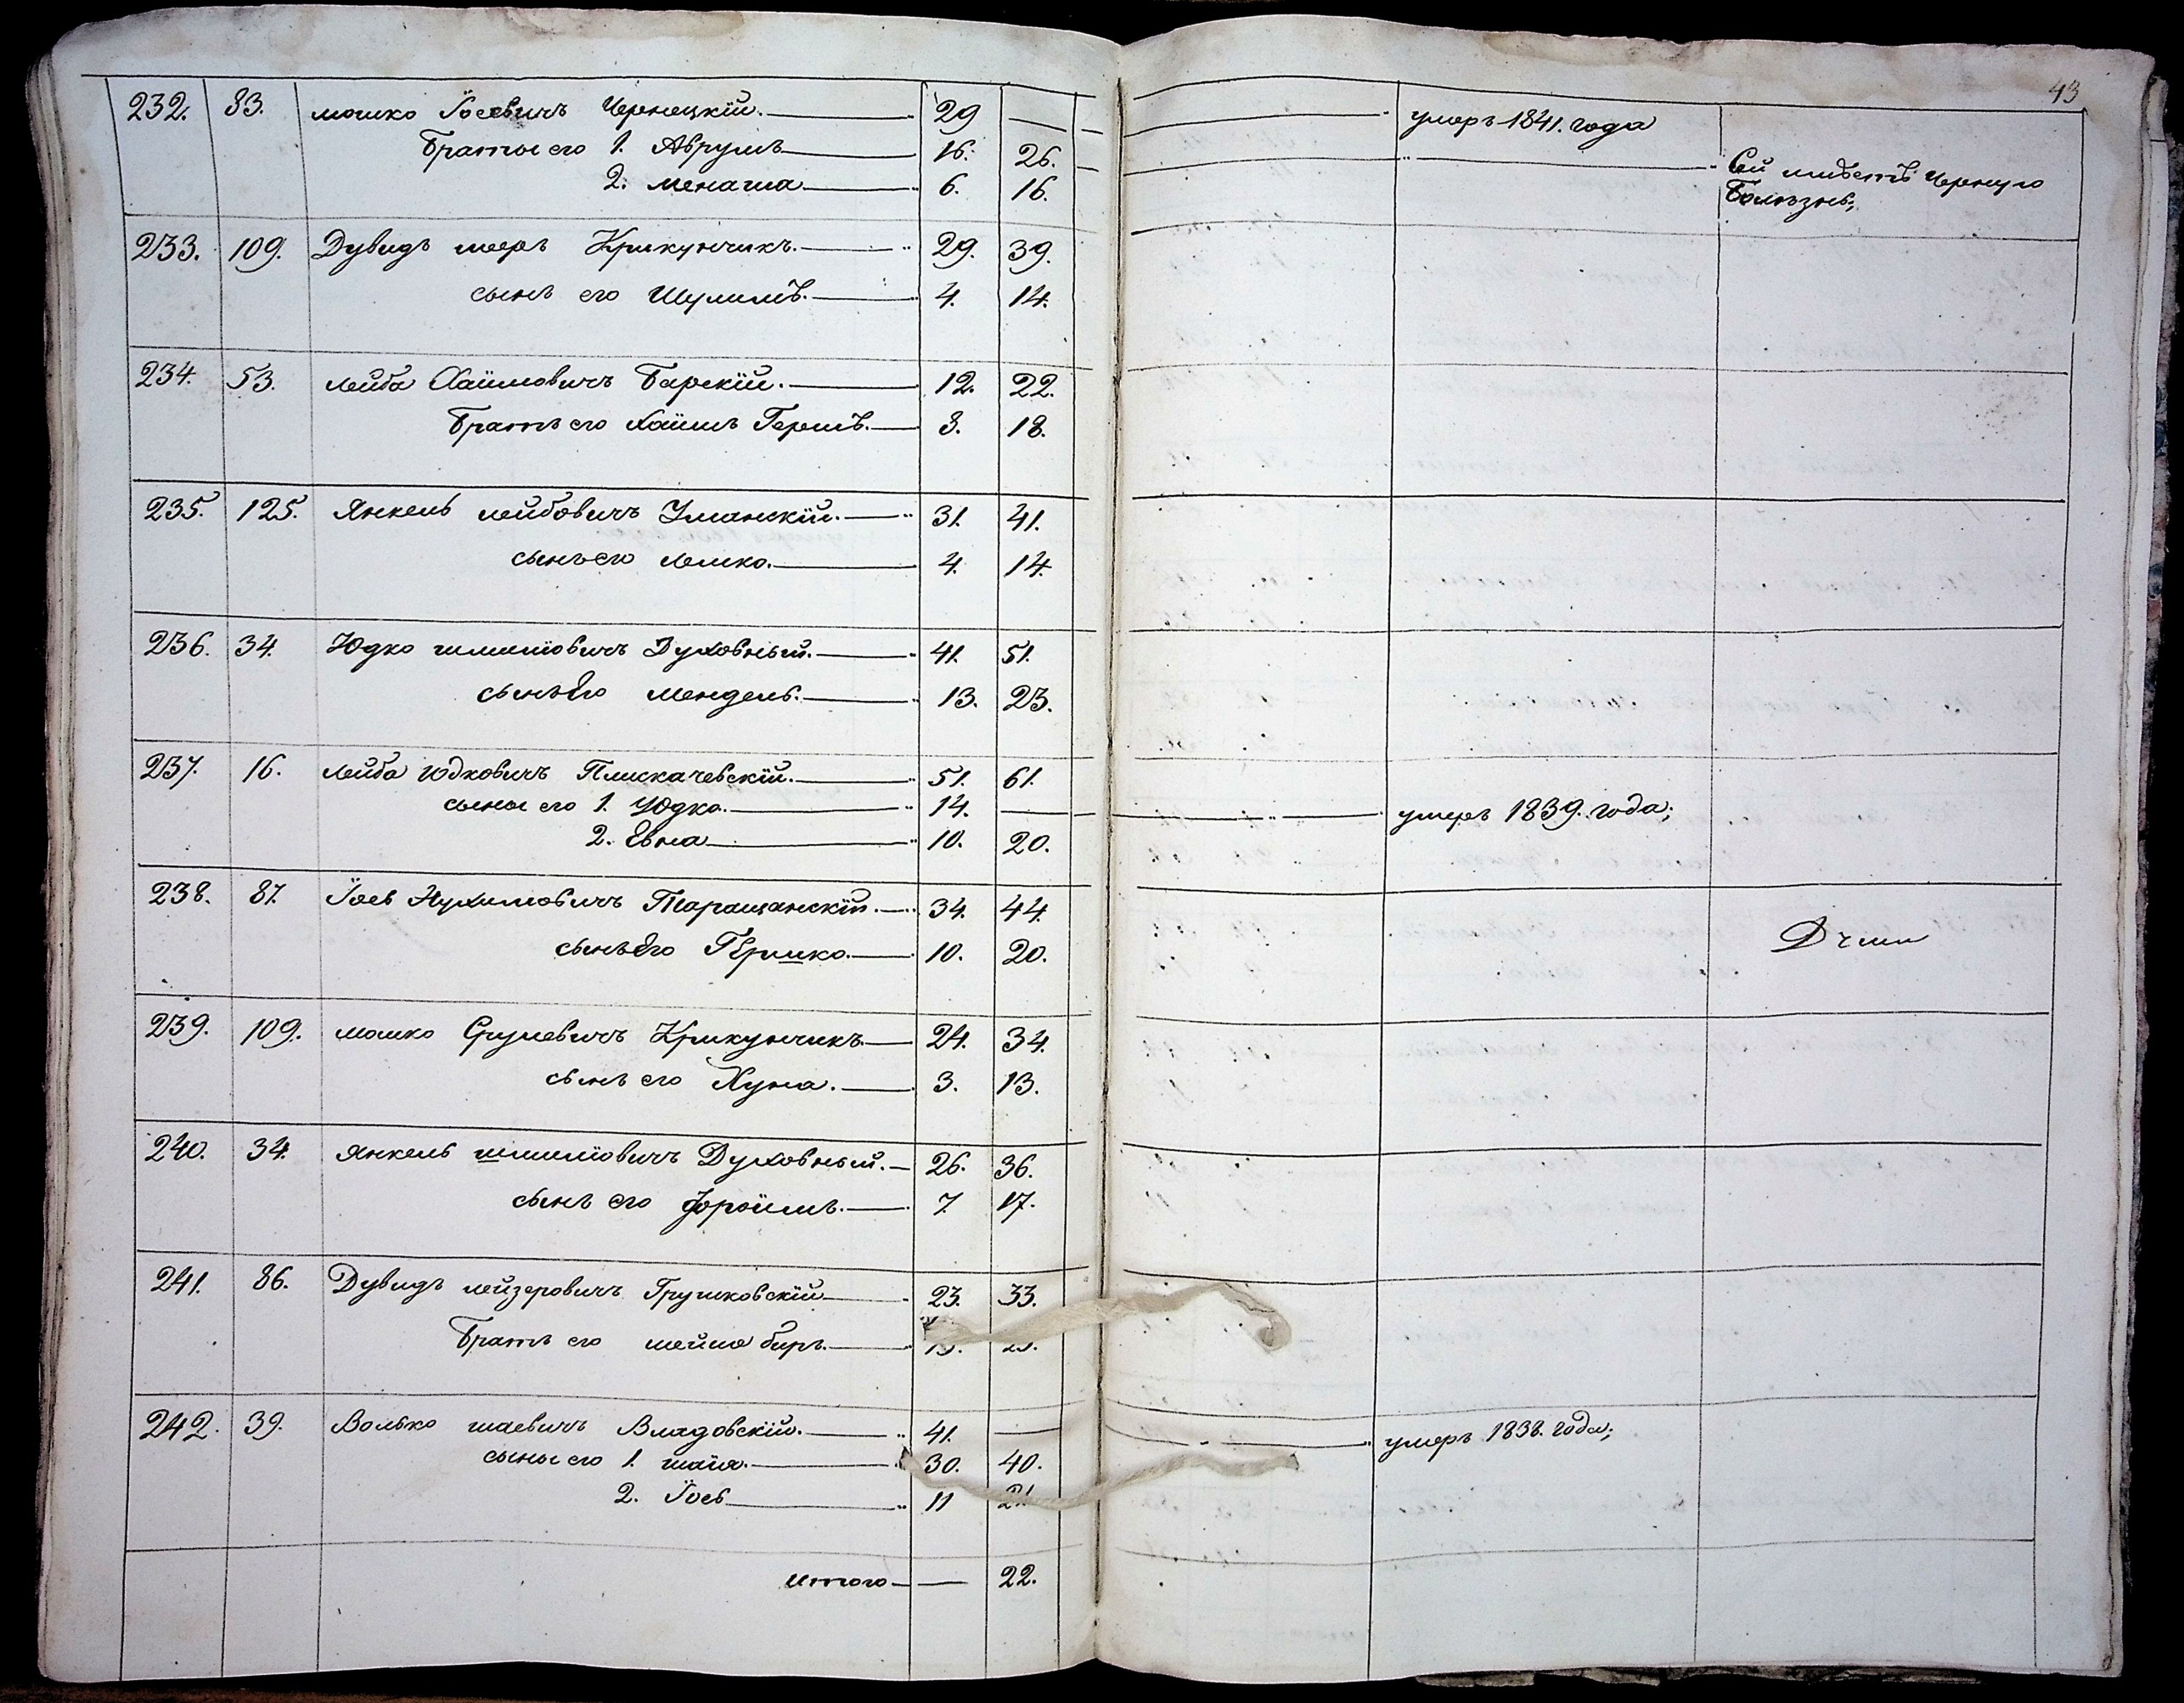 43
232. 83. мошко Іосевичъ Чернецкій. 29 — умеръ 1841. года
Браты его 1. Аврумъ 16. 26. Сей имѣетъ Черную
2. менаша 6. 16. Болѣзнь;
233. 109. Дувидъ мееръ Крикунчикъ. 29. 39.
сынъ его Шулимъ. 4. 14.
234. 53. лейба Хаимовичъ Барскій. 12. 22.
Братъ его Хаимъ Гершъ. 8. 18.
235. 125. Янкель лейбовичъ Уманскій. 31. 41.
сынъ его лемко. 4. 14.
236. 34. Юдко шмилювичъ Духовный. 41. 51.
сынъ Его мендель. 13. 23.
237. 16. лейба юдковичъ Плискачевскій. 51. 61.
сыны его 1. Юдко. 14. — умеръ 1839. года;
2. Евна 10. 20.
238. 87. Іосъ Нухимовичъ Таращанскій. 34. 44.
сынъ Его Гершко. 10. 20.
239. 109. мошко Срулевичъ Крикунчикъ 24. 34.
сынъ его Хуна. 3. 13.
240. 34. Янкель шмилювичъ Духовный. 26. 36.
сынъ его Фроимъ. 7. 17.
241. 86. Дувидъ лейзеровичъ Грушковскій 23. 33.
Братъ его беръ.
242. 39. Волько шаевичъ Владовскій. 41. — умеръ 1838. года;
сыны его 1. шаія. 30. 40.
2. Іось 11 21.
итого — 22.